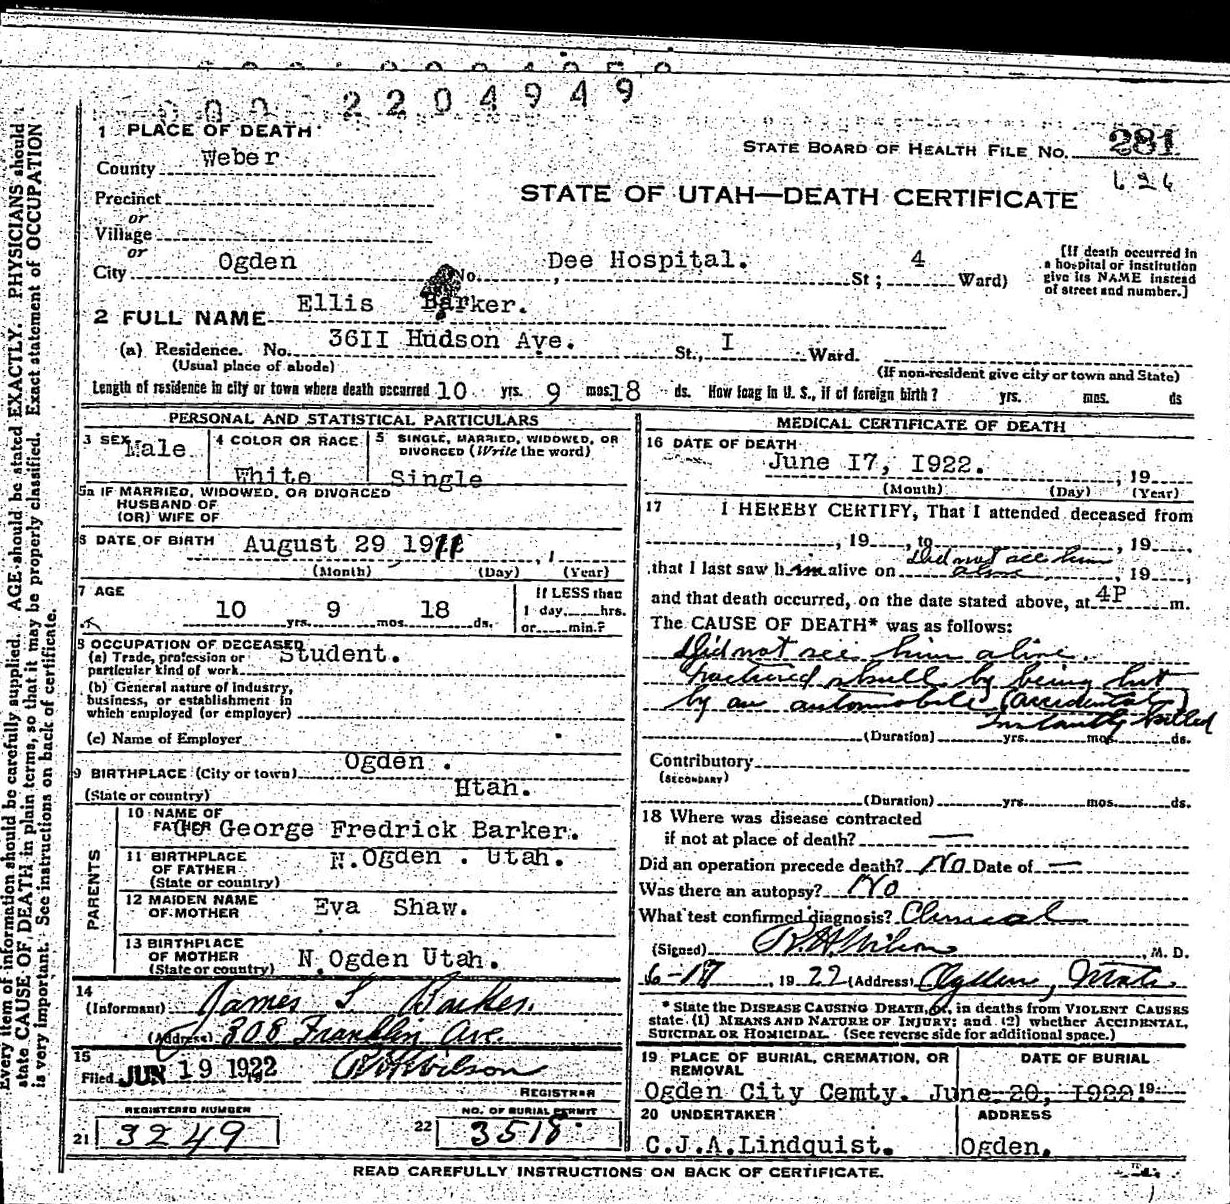 2204949
1 PLACE OF DEATH
County Weber
STATE BOARD OF HEALTH FILE NO. 281
626
Precinct
or
STATE OF UTAH—DEATH CERTIFICATE
Village
or
City Ogden No. Dee Hospital. St; 4 Ward)
[If death occurred in
a hospital or institution
give its NAME instead
of street and number.]
2 FULL NAME Ellis Barker.
(a) Residence. No. 36II Hudson Ave. St., I Ward.
(Usual place of abode)
(If non-resident give city or town and State)
Length of residence in city or town where death occurred 10 yrs. 9 mos. 18 ds. How long in U. S., if of foreign birth? yrs. mos. ds
PERSONAL AND STATISTICAL PARTICULARS
3 SEX Male
4 COLOR OR RACE White
5 SINGLE, MARRIED, WIDOWED, OR
DIVORCED (Write the word)
Single
5a IF MARRIED, WIDOWED, OR DIVORCED
HUSBAND OF
(OR) WIFE OF
6 DATE OF BIRTH August 29 1911
(Month) (Day) (Year)
7 AGE
10 yrs. 9 mos. 18 ds.
If LESS than
1 day, hrs.
or min.?
8 OCCUPATION OF DECEASED
(a) Trade, profession or
particular kind of work Student.
(b) General nature of industry,
business, or establishment in
which employed (or employer)
(c) Name of Employer
9 BIRTHPLACE (City or town) Ogden .
(State or country) Utah.
PARENTS
10 NAME OF
FATHER George Fredrick Barker.
11 BIRTHPLACE
OF FATHER N.Ogden . Utah.
(State or country)
12 MAIDEN NAME
OF MOTHER Eva Shaw.
13 BIRTHPLACE
OF MOTHER N.Ogden Utah.
(State or country)
14
(Informant) James Barker.
(Address) 808 Franklin Ave.
15
Filed JUN 19 1922 R H Wilson
REGISTRAR
REGISTERED NUMBER
21 3249
NO. OF BURIAL PERMIT
22 3518
MEDICAL CERTIFICATE OF DEATH
16 DATE OF DEATH
June I7, I922. , 19
(Month) (Day) (Year)
17 I HEREBY CERTIFY, That I attended deceased from
, 19 , to , 19 ,
that I last saw him alive on Did not see him alive , 19 ,
and that death occurred, on the date stated above, at 4P m.
The CAUSE OF DEATH* was as follows:
Did not see him alive.
Fractured skull by being hit
by an automobile (accidental)
Instantly killed
(Duration) yrs. mos. ds.
Contributory
(SECONDARY)
(Duration) yrs. mos. ds.
18 Where was disease contracted
if not at place of death? —
Did an operation precede death? No Date of —
Was there an autopsy? No
What test confirmed diagnosis? Clinical
(Signed) R. H. Wilson M. D.
6-17 1922 (Address) Ogden, Utah
* State the DISEASE CAUSING DEATH, or, in deaths from VIOLENT CAUSES
state (1) MEANS AND NATURE OF INJURY; and (2) whether ACCIDENTAL,
SUICIDAL OR HOMICIDAL. (See reverse side for additional space.)
19 PLACE OF BURIAL, CREMATION, OR
REMOVAL
DATE OF BURIAL
Ogden City Cemty. June 20, I922. 19
20 UNDERTAKER
ADDRESS
C.J.A.Lindquist. Ogden.
READ CAREFULLY INSTRUCTIONS ON BACK OF CERTIFICATE.
Every item of information should be carefully supplied. AGE should be stated EXACTLY. PHYSICIANS should
state CAUSE OF DEATH in plain terms, so that it may be properly classified. Exact statement of OCCUPATION
is very important. See instructions on back of certificate.